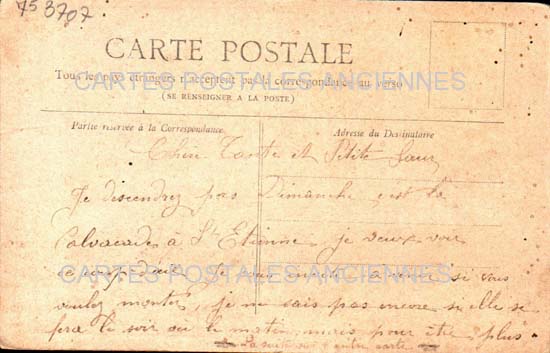 75 3707
CARTE POSTALE
Tous les pays étrangers n'acceptent pas la correspondance au verso
CARTES POSTALES ANCIENNES
(SE RENSEIGNER A LA POSTE)
Partie réservée à la Correspondance
Adresse du Destinataire
Chère Tante et Petite Sœur
Je descendrez pas Dimanche est la
Calvacade à St Etienne je veux voir
ce je vous à si vous
CARTES POSTALES ANCIENNES
voulez monter, je ne sais pas encore si elle se
fera le soir ou le matin, mais pour être plus
La suite sur l'autre carte